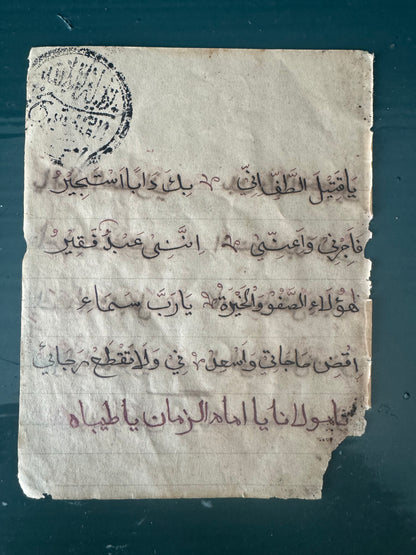 يَاقَتِيْلَ الطَّفِّ اِنِّيْ بِكَ دَابًا اَسْتَجِيْرُ
فَاَجِرْنِي وَاَعِنِّي اِنَّنِي عَبْدٌ فَقِيْرُ
هٰؤُلَاءِ الصَّفْوُ وَالْخَيْرَةُ يَارَبَّ سَمَاءِ
اِقْضِ حَاجَاتِي وَاَسْعِدْ نِي وَلَاتَقْطَعْ رَجَائِي
يامولانا يا امام الزمان يا طيباه